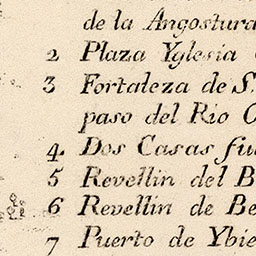 de la Angostura
2 Plaza Yglesia
3 Fortaleza de S.
paso del Rio
4. Dos Casas
5 Revellin del
6 Revellin de
7 Puerto de